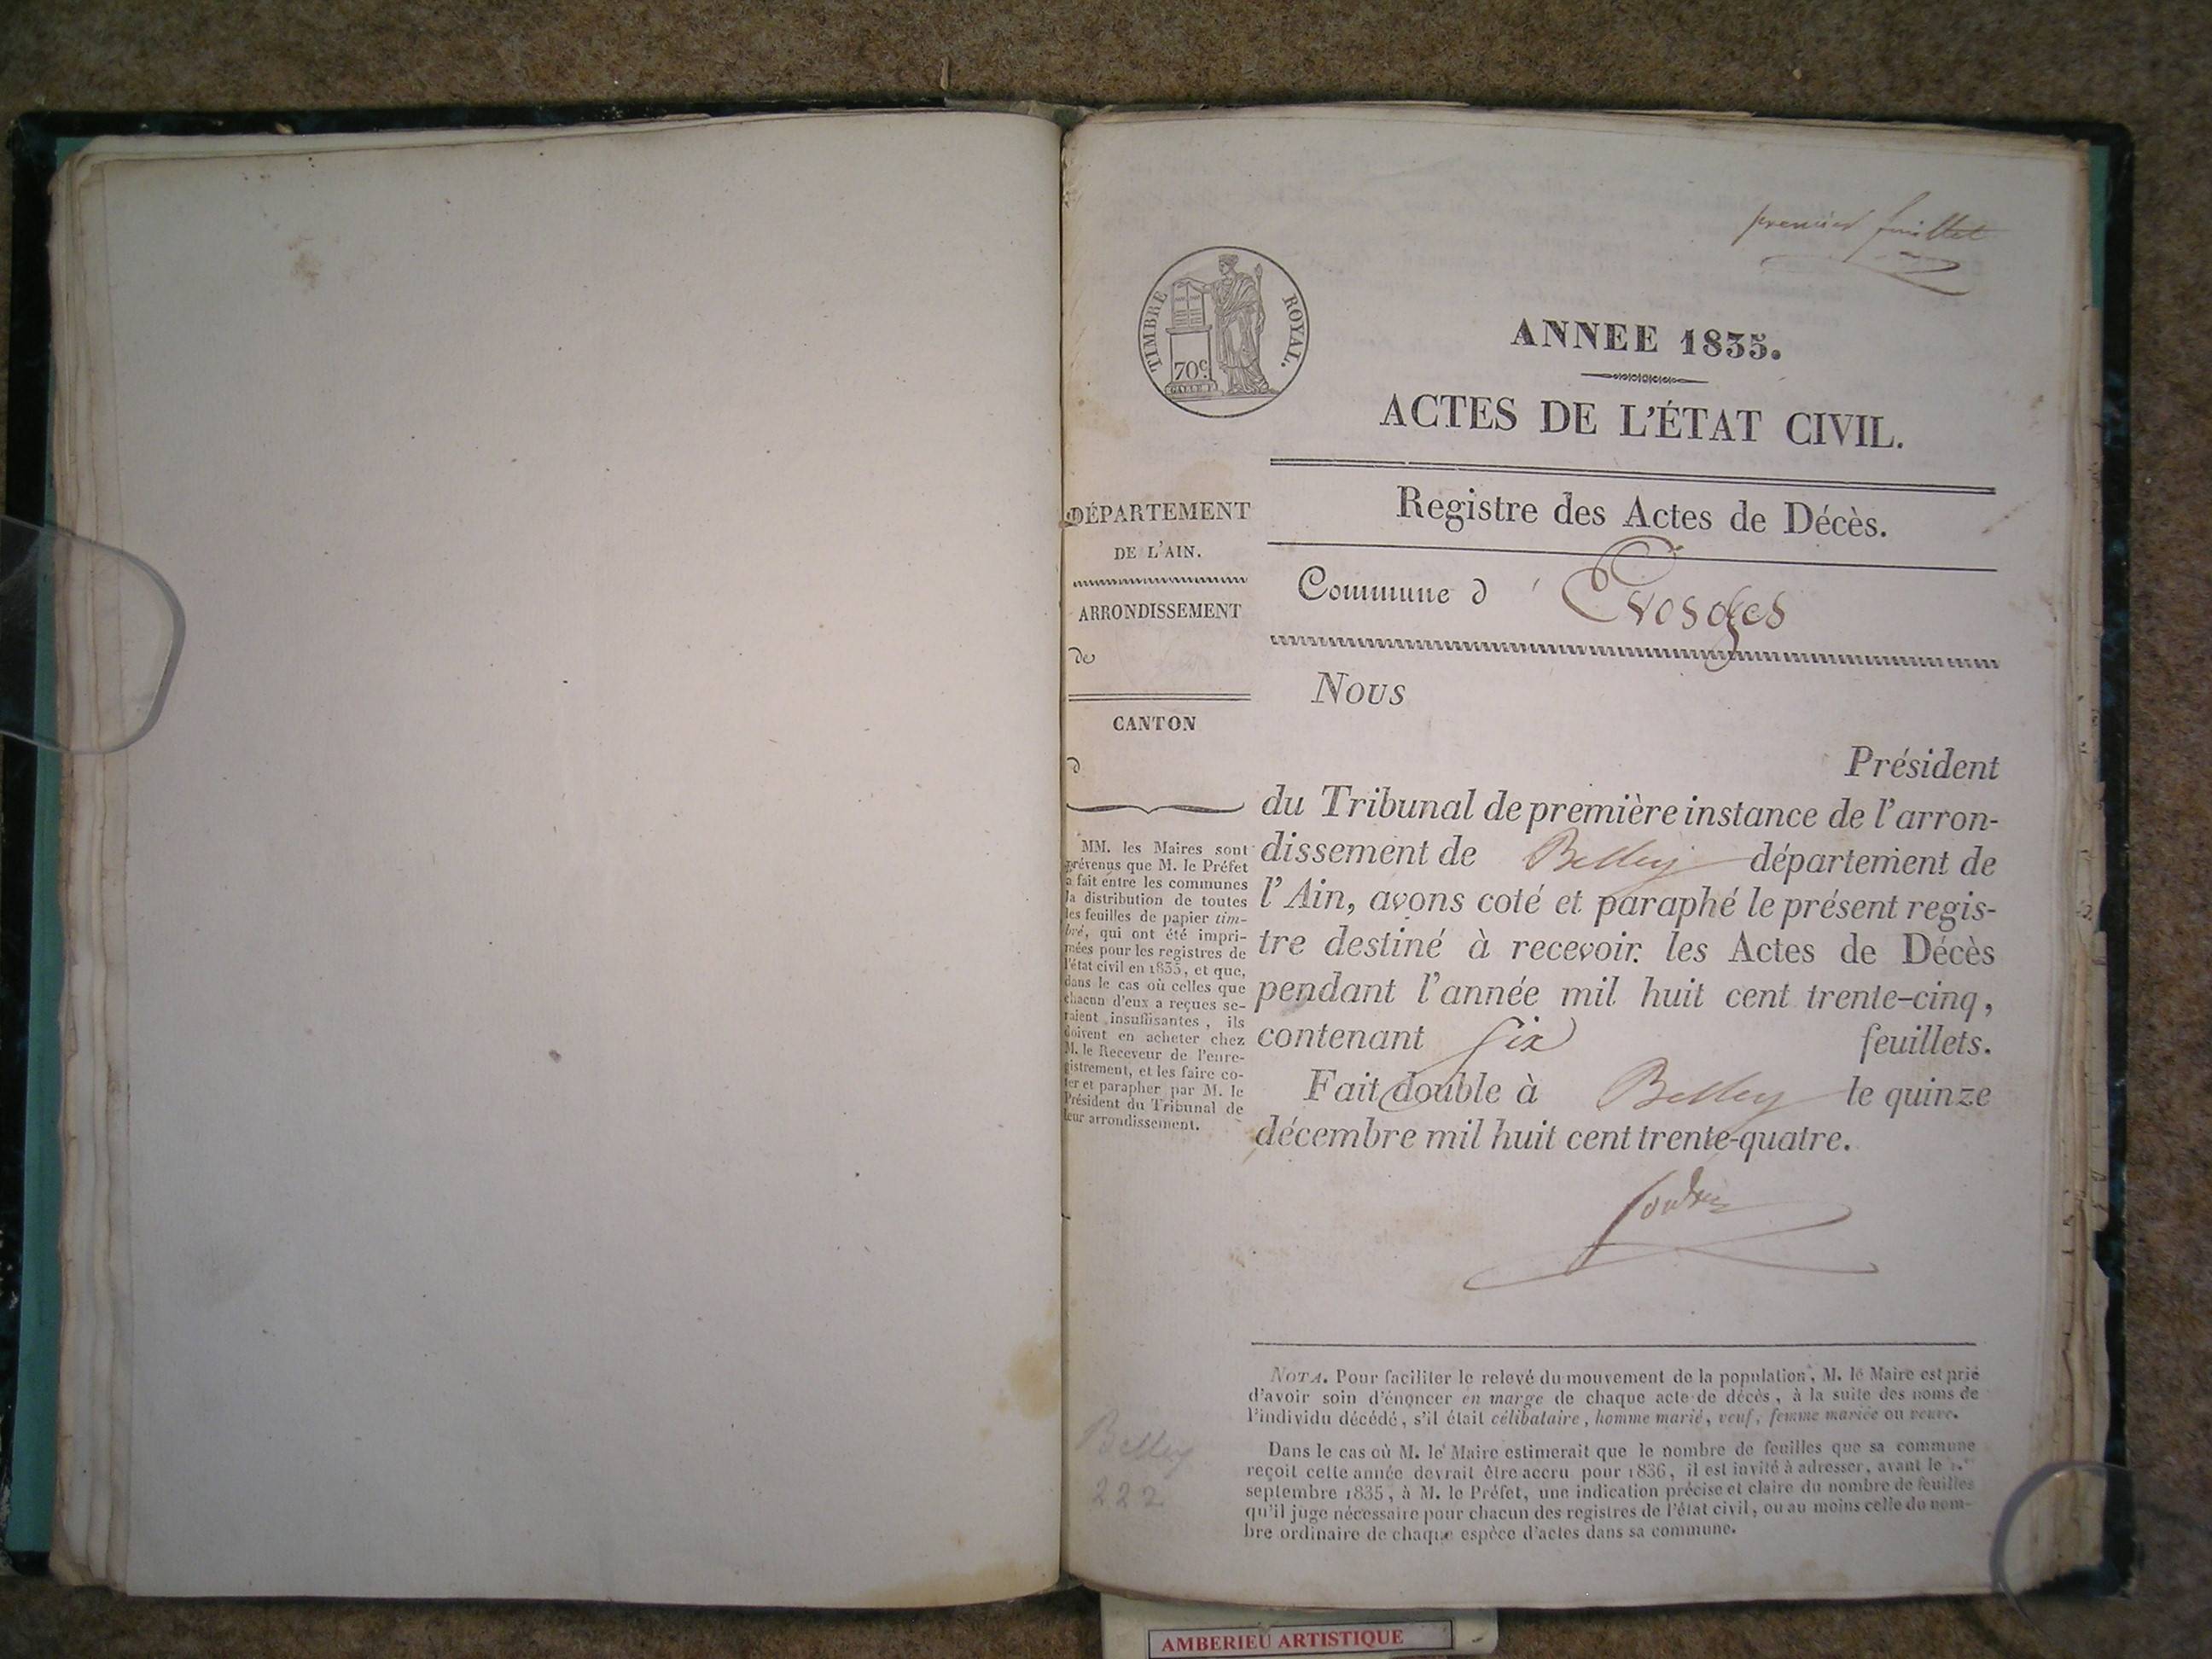 premier feuillet
TIMBRE ROYAL.
70c
ANNEE 1835.
ACTES DE L'ÉTAT CIVIL.
Registre des Actes de Décès.
Commune d'Evosges
DÉPARTEMENT
DE L'AIN.
ARRONDISSEMENT
de
CANTON
d
MM. les Maires sont
prévenus que M. le Préfet
a fait entre les communes
la distribution de toutes
les feuilles de papier tim-
bré, qui ont été impri-
mées pour les registres de
l'état civil en 1835, et que,
dans le cas où celles que
chacun d'eux a reçues se-
raient insuffisantes, ils
doivent en acheter chez
M. le Receveur de l'enre-
gistrement, et les faire co-
ter et parapher par M. le
Président du Tribunal de
leur arrondissement.
Nous
Président
du Tribunal de première instance de l'arron-
dissement de Belley département de
l'Ain, avons coté et paraphé le présent regis-
tre destiné à recevoir les Actes de Décès
pendant l'année mil huit cent trente-cinq,
contenant six feuillets.
Fait double à Belley le quinze
décembre mil huit cent trente-quatre.
NOTA. Pour faciliter le relevé du mouvement de la population, M. le Maire est prié
d'avoir soin d'énoncer en marge de chaque acte de décès, à la suite des noms de
l'individu décédé, s'il était célibataire, homme marié, veuf, femme mariée ou veuve.
Dans le cas où M. le Maire estimerait que le nombre de feuilles que sa commune
reçoit cette année devrait être accru pour 1836, il est invité à adresser, avant le 1.er
septembre 1835, à M. le Préfet, une indication précise et claire du nombre de feuilles
qu'il juge nécessaire pour chacun des registres de l'état civil, ou au moins celle du nom-
bre ordinaire de chaque espèce d'actes dans sa commune.
Belley
222
AMBERIEU ARTISTIQUE